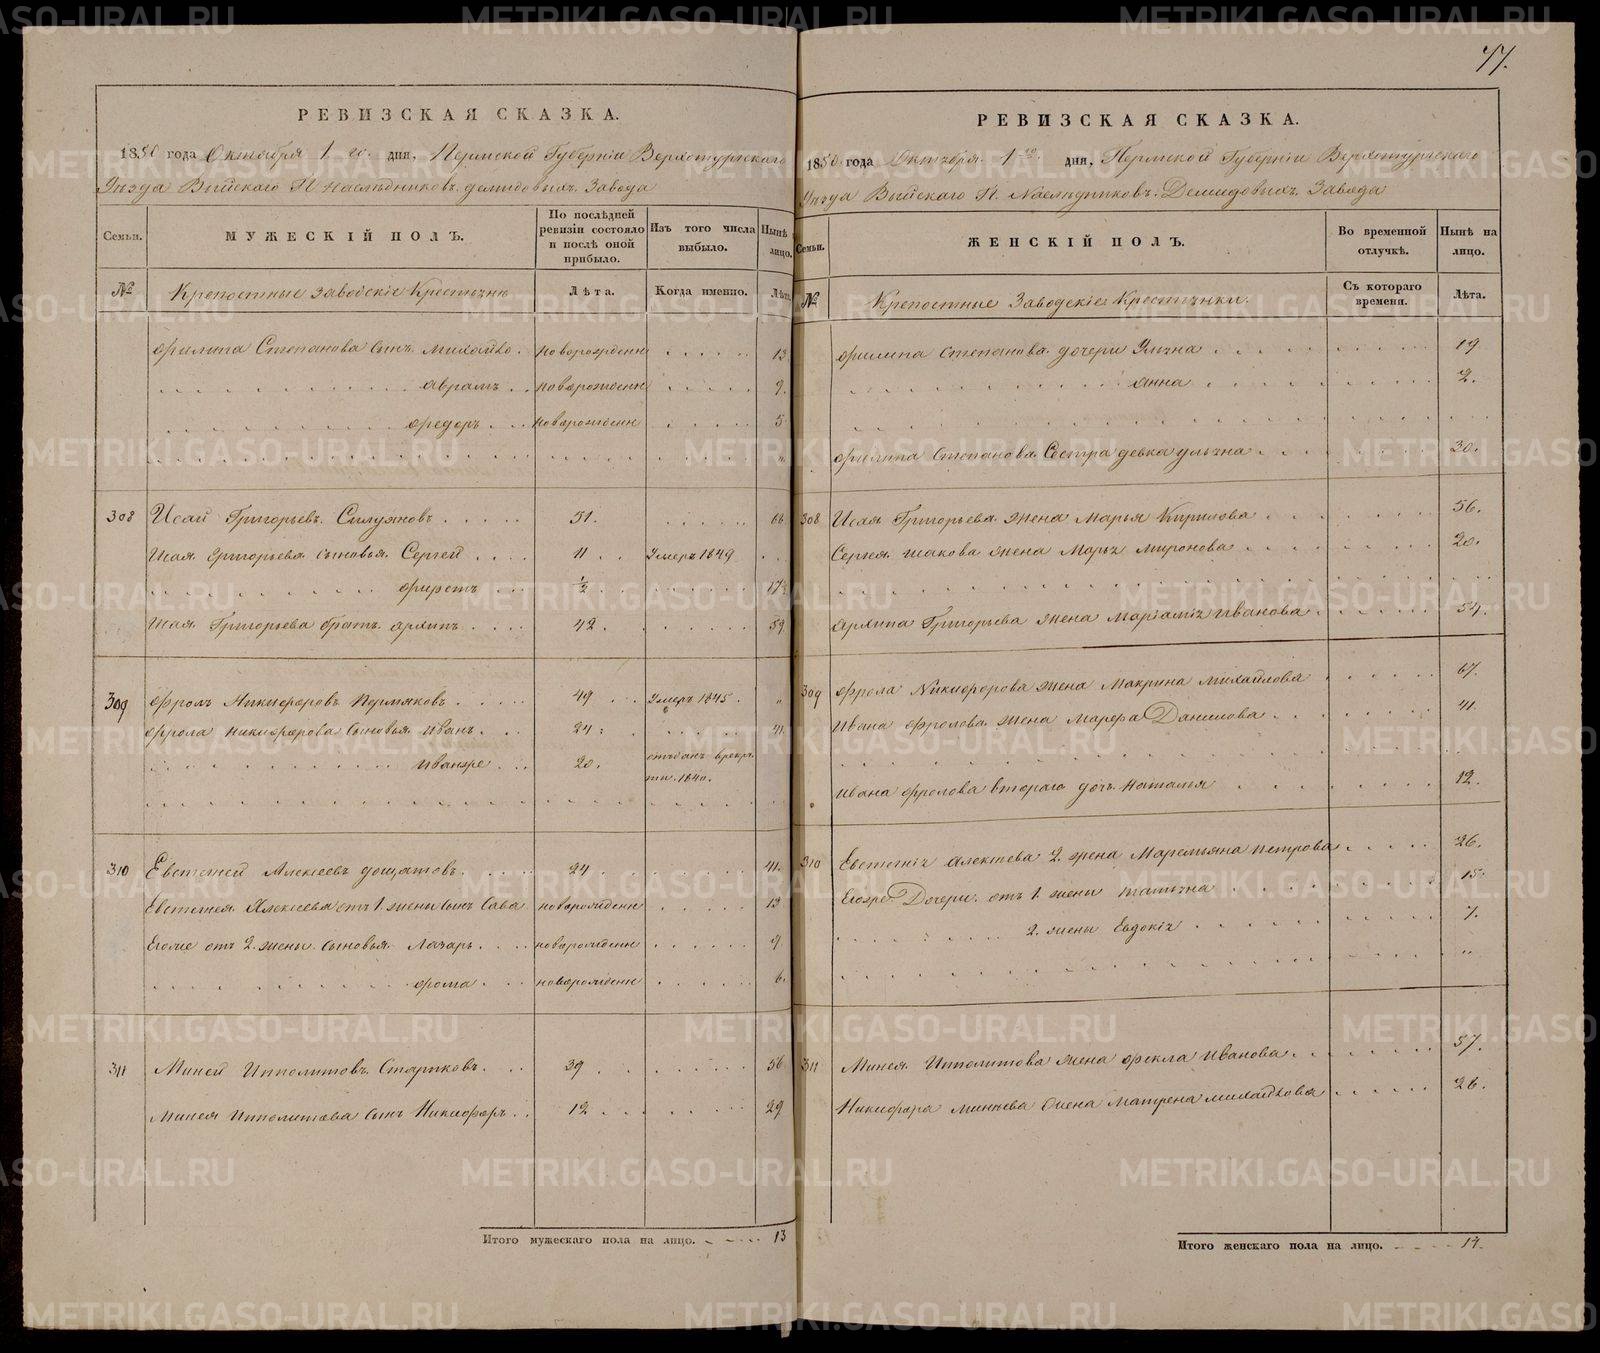 77.
РЕВИЗСКАЯ СКАЗКА.
1850 года Октября 1 го. дня, Пермской Губерніи Верхотурскаго
Уѣзда Выйскаго Н Наслѣдниковъ демидовыхъ Завода
Семьи.
МУЖЕСКІЙ ПОЛЪ.
По послѣдней ревизіи состояло и послѣ оной прибыло.
Изъ того числа выбыло.
Нынѣ лицо.
№
Крепостные заводскіе Крестьяне
Лѣта.
Когда именно.
Лѣта.
Филипа Степанова сынъ Михайло . новорожденн . . . . . 13
аврамъ . . новорожденн . . . . . 9.
федоръ . . . новорожденн . . . . . 5
308 Исай Григорьевъ Силуяновъ . . . . . 51. . . . . . . 68
Исая Григорьева сыновья Сергей . . . . 11 . . Умеръ 1849 . .
фирстъ . . . 1/2 . . . . . . 17½
Исая Григорьева братъ архипъ . . . . 42 . . . . . . 59
309 Фролъ Никифоровъ Пермяковъ . . . . . 49 . . Умеръ 1845 . „
фрола никифорова сыновья иванъ . . . . 24 : . . . . . 41.
иванже . . . 20. отданъ в рекру
ты. 1840.
310 Евстегней Алексеевъ дощатовъ . . . . . 24 . . . . . . . 41.
Евстегнея Алексеева отъ 1. жены сынъ Сава новорожденн . . . . . 13
Егоже отъ 2. жены сыновья Лазарь . . . . новорожденн . . . . . . 9
фома . . . новорожденн . . . . . . 6.
311 Миней Ипполитовъ Стариковъ . . . 39 . . . . . . . 56
Минея Ипполитова сынъ Никифоръ . . 12 . . . . . . . 29
Итого мужескаго пола на лицо. 13
РЕВИЗСКАЯ СКАЗКА.
1850 года Октября 1 го. дня, Пермской Губерніи Верхотурскаго
Уѣзда Выйскаго Н. Наслѣдниковъ Демидовыхъ Завода
Семьи.
ЖЕНСКІЙ ПОЛЪ.
Во временной отлучкѣ.
Нынѣ на лицо.
№
Крепостные Заводские Крестьянки.
Съ котораго времени.
Лѣта.
филипа степанова дочери Ульяна . . . . . . 19
Анна . . . . . . 2.
филипа Степанова Сестра девка ульяна . . . . . 30.
308 Исая Григорьева жена Марья Кирилова . . . . . 56.
Сергея исакова жена Марья миронова . . . . . 20.
Архипа Григорьева жена Маріамія Иванова . . . . . 54.
309 фрола Никифорова жена Макрина Михайлова . . . . . 67.
Ивана фролова жена марфа Данилова . . . . . 41.
ивана фролова втораго дочь наталья . . . . . 12.
310 Евстегнія алексеева 2. жена Маремьяна петрова . . . . . 26.
Егоже Дочери. отъ 1. жены татьяна . . . . . 15.
2. жены Евдокія . . . . . 7.
311 Минея Ипполитова жена фекла Иванова . . . . . 57.
Никифора минеева жена матрена михайлова . . . . . 26.
Итого женскаго пола на лицо. 14.
METRIKI.GASO-URAL.RU